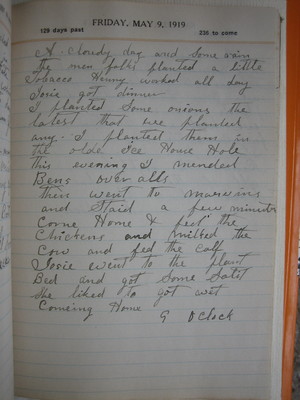 FRIDAY, MAY 9, 1919
129 days past 236 to come
A. Cloudy day and Some rain
The men folks planted a little
Tobacco Henry worked all day
Josie got dinner
I planted Some onions the
latest that we planted
any. I planted them in
the olde Ice House Hole
this evening I mended
Bens over alls
then went to
and Staid a few minutes
Come Home & fed the
Chickens and milked the
Cow and fed the calf
Josie went to the plant
Bed and got Some
She liked to got wet
Comeing Home
O Clock